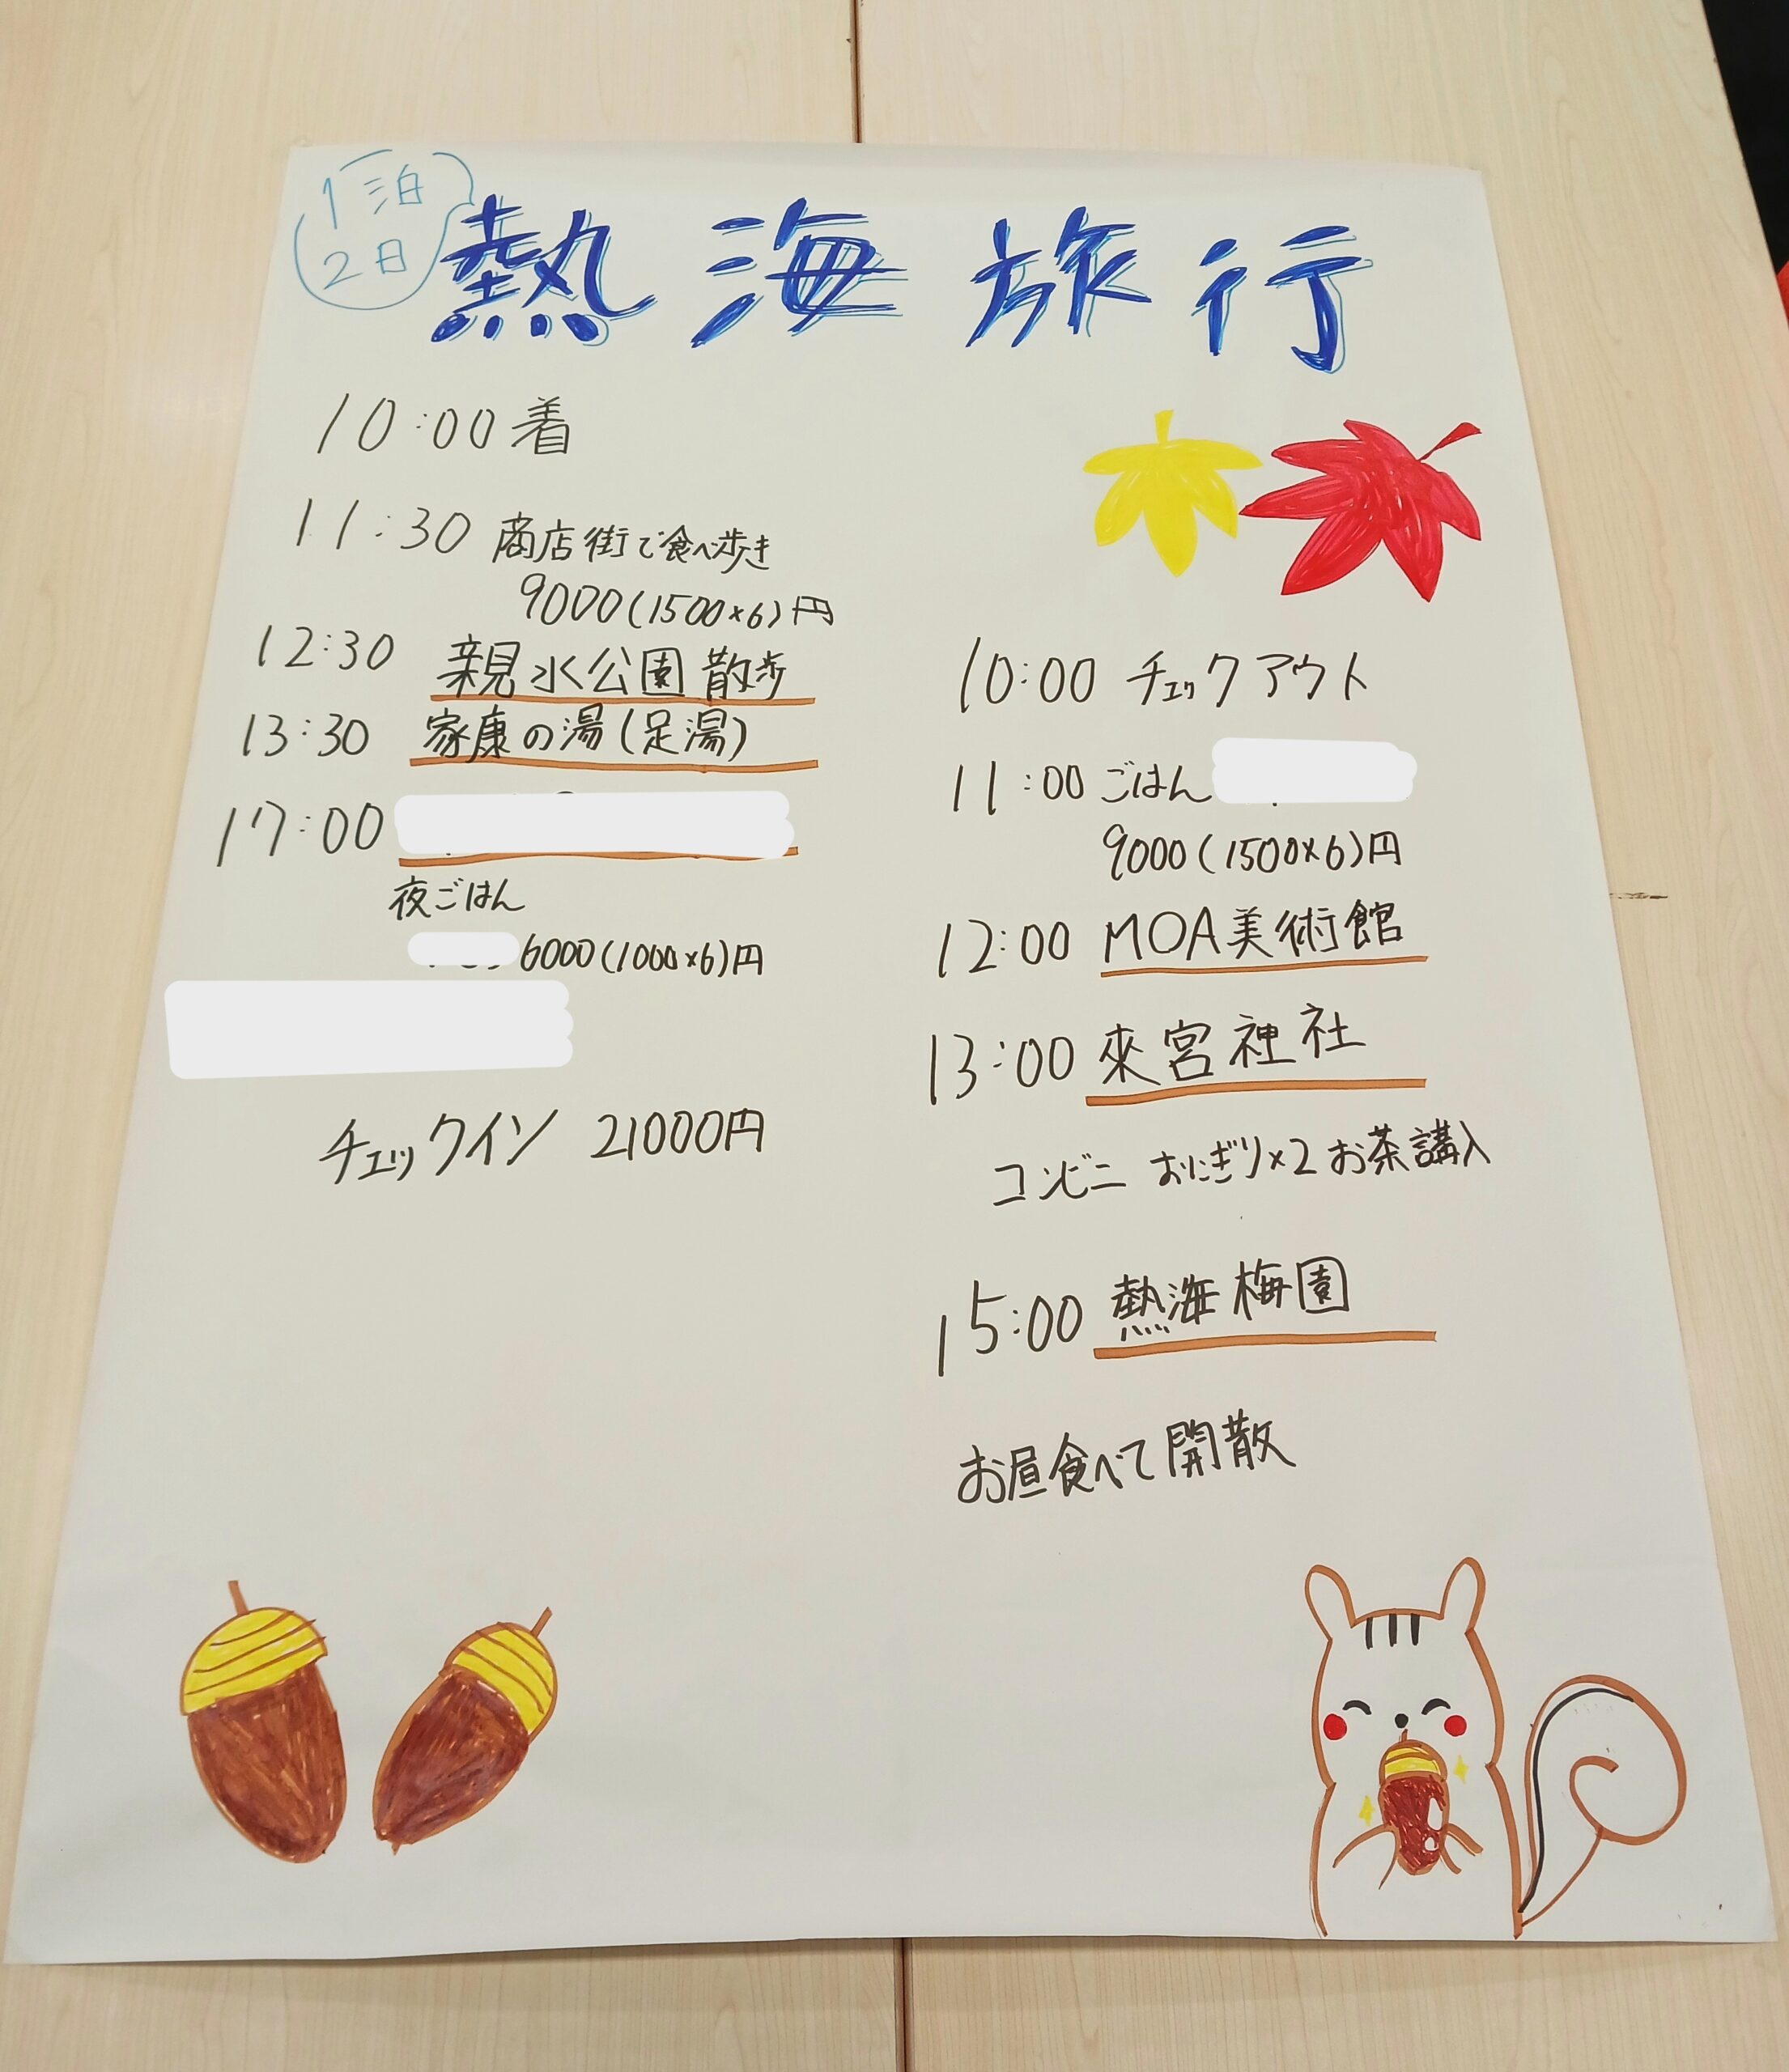 1泊
2日
熱海旅行
10:00着
11:30 商店街で食べ歩き
9000(1500×6)円
12:30 親水公園散歩
13:30 家康の湯(足湯)
17:00
夜ごはん
6000(1000×6)円
チェックイン 21000円
10:00 チェックアウト
11:00 ごはん
9000(1500×6)円
12:00 MOA美術館
13:00 來宮神社
コンビニ おにぎり×2 お茶講入
15:00 熱海梅園
お昼食べて開散